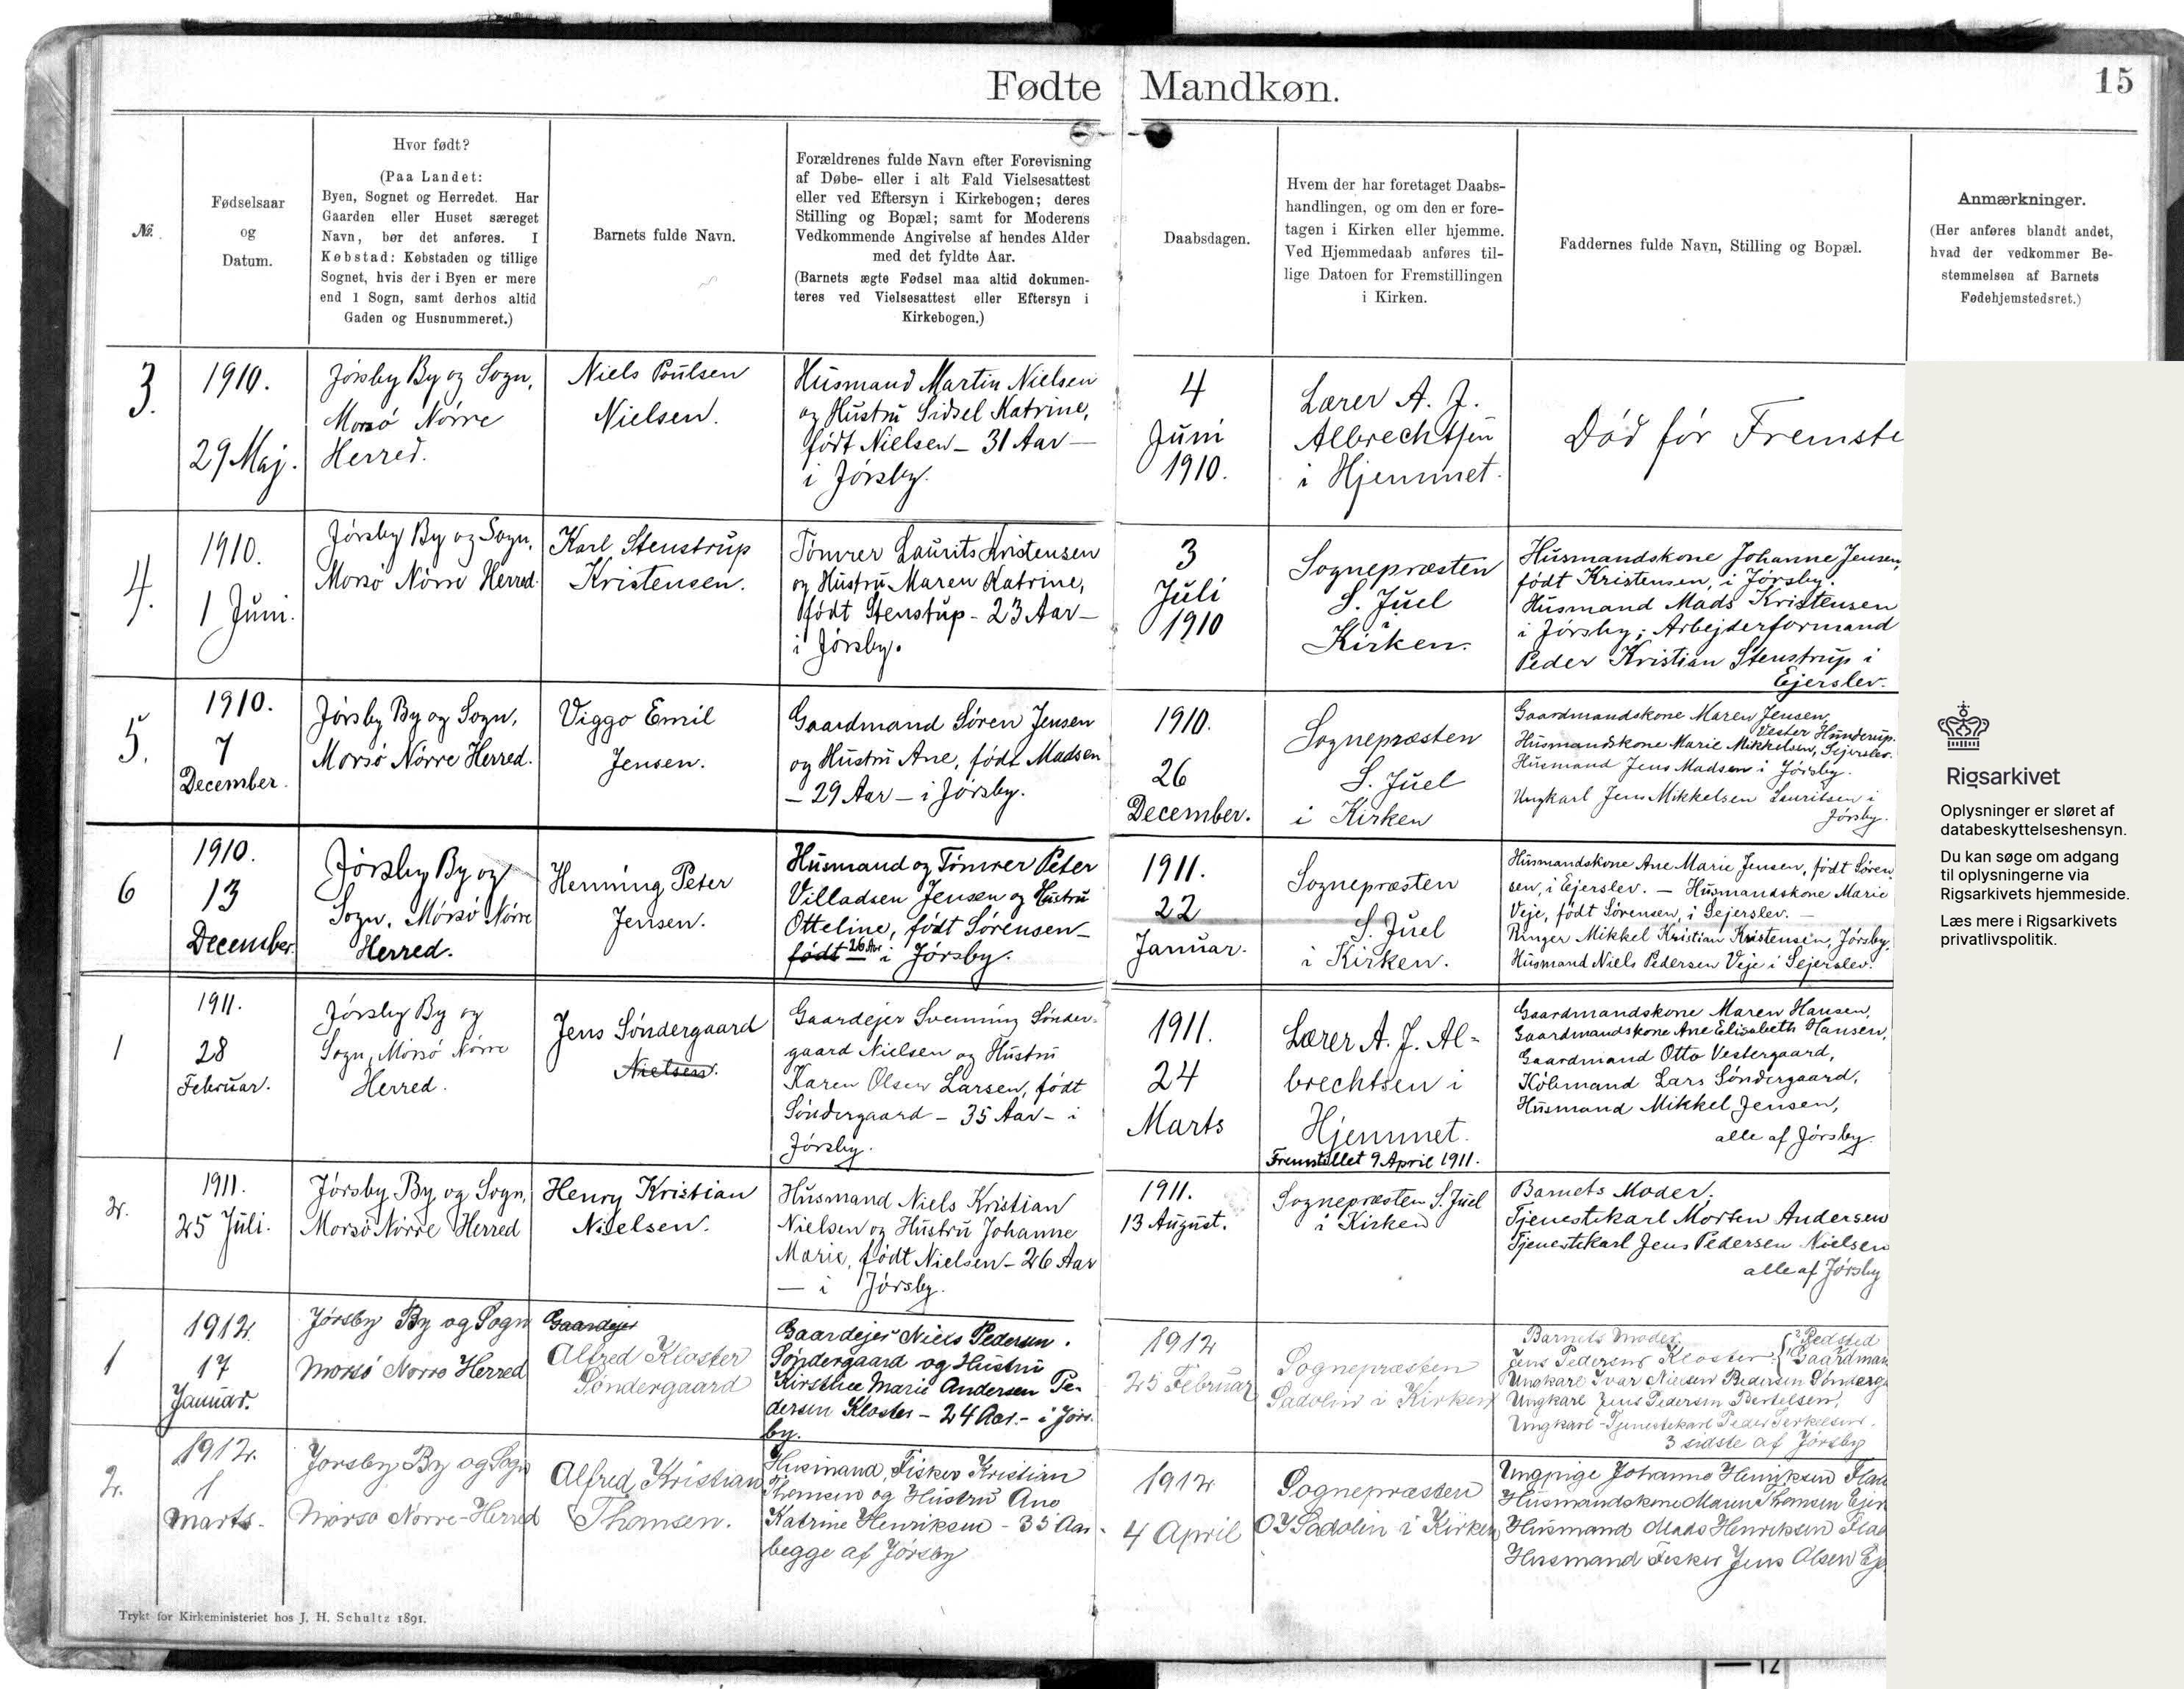 Fødte Mandkøn.
15
№.
Fødselsaar
og
Datum.
Hvor født?
(Paa Landet:
Byen, Sognet og Herredet. Har
Gaarden eller Huset særeget
Navn, bør det anføres. I
Købstad: Købstaden og tillige
Sognet, hvis der i Byen er mere
end 1 Sogn, samt derhos altid
Gaden og Husnummeret.)
Barnets fulde Navn.
Forældrenes fulde Navn efter Forevisning
af Døbe- eller i alt Fald Vielsesattest
eller ved Eftersyn i Kirkebogen; deres
Stilling og Bopæl; samt for Moderens
Vedkommende Angivelse af hendes Alder
med det fyldte Aar.
(Barnets ægte Fødsel maa altid dokumen-
teres ved Vielsesattest eller Eftersyn i
Kirkebogen.)
Daabsdagen.
Hvem der har foretaget Daabs-
handlingen, og om den er fore-
tagen i Kirken eller hjemme.
Ved Hjemmedaab anføres til-
lige Datoen for Fremstillingen
i Kirken.
Faddernes fulde Navn, Stilling og Bopæl.
Anmærkninger.
(Her anføres blandt andet,
hvad der vedkommer Be-
stemmelsen af Barnets
Fødehjemstedsret.)
3.
1910.
29 Maj.
Jørsby By og Sogn,
Morsø Nørre
Herred.
Niels Poulsen
Nielsen.
Husmand Martin Nielsen
og Hustru Sidsel Katrine,
født Nielsen - 31 Aar -
i Jørsby.
4
Juni
1910.
Lærer A. J.
Albrechtsen
i Hjemmet.
Død før Fremste
4.
1910.
1 Juni.
Jørsby By og Sogn,
Morsø Nørre Herred.
Karl Stenstrup
Kristensen.
Tømrer Laurits Kristensen
og Hustru Maren Katrine,
født Stenstup - 23 Aar -
i Jørsby.
3
Juli
1910
Sognepræsten
S. Juel
i
Kirken.
Husmandskone Johanne Jensen,
født Kristensen, i Jørsby.
Husmand Mads Kristensen
i Jørsby; Arbejderformand
Peder Kristian Stenstrup i
Ejerslev.
5.
1910.
7
December.
Jørsby By og Sogn,
Morsø Nørre Herred.
Viggo Emil
Jensen.
Gaardmand Søren Jensen
og Hustru Ane, født Madsen
- 29 Aar - i Jørsby.
1910.
26
December.
Sognepræsten
S. Juel
i Kirken
Gaardmandskone Maren Jensen,
Vester Hunderup.
Husmandskone Marie Mikkelsen, Sejerslev.
Husmand Jens Madsen i Jørsby.
Ungkarl Jens Mikkelsen Lauritsen i
Jørsby.
6
1910.
13
December.
Jørsby By og
Sogn. Morsø Nørre
Herred.
Henning Peter
Jensen.
Husmand og Tømrer Peter
Villadsen Jensen og Hustru
Otteline, født Sørensen -
født 26 Aar i Jørsby.
1911.
22
Januar.
Sognepræsten
S. Juel
i Kirken.
Husmandskone Ane Marie Jensen, født Søren
sen, i Ejerslev. - Husmandskone Marie
Veje, født Sørensen, i Sejerslev. -
Ringer Mikkel Kristian Kristensen, Jørsby,
Husmand Niels Pedersen Veje i Sejerslev.
1
1911.
28
Februar.
Jørsby By og
Sogn, Morsø Nørre
Herred.
Jens Søndergaard
Nielsen.
Gaardejer Svenning Sønder-
gaard Nielsen og Hustru
Karen Olsen Larsen, født
Søndergaard - 35 Aar - i
Jørsby.
1911.
24
Marts
Lærer A. J. Al-
brechtsen i
Hjemmet.
Fremstillet 9 April 1911.
Gaardmandskone Maren Hansen,
Gaardmandskone Ane Elisabeth Hansen,
Gaardmand Otto Vestergaard,
Købmand Lars Søndergaard,
Husmand Mikkel Jensen,
alle af Jørsby.
2.
1911.
25 Juli.
Jørsby By og Sogn,
Morsø Nørre Herred
Henry Kristian
Nielsen.
Husmand Niels Kristian
Nielsen og Hustru Johanne
Marie, født Nielsen - 26 Aar
- i Jørsby.
1911.
13 August.
Sognepræsten S. Juel
i Kirken
Barnets Moder.
Tjenestekarl Morten Andersen
Tjenestekarl Jens Pedersen Nielsen
alle af Jørsby
1
1912.
17
Januar.
Jørsby By og Sogn
Morsø Nørre Herred
Gaardejer
Alfred Kloster
Søndergaard
Gaardejer Niels Pedersen
Søndergaard og Hustru
Kirstine Marie Andersen Pe-
dersen Kloster - 24 Aar. - i Jørs-
by.
1912
25 Februar
Sognepræsten
Sadolin i Kirken
Barnets Moder
Jens Pedersen Kloster Redsted Gaardman
Ungkarl Ivar Nielsen Pedersen Sønderg
Ungkarl Jens Pedersen Bertelsen,
Ungkarl - Tjenestekarl Peder
3 sidste af Jørsby
2.
1912.
1
Marts.
Jørsby By og Sogn
Morsø Nørre-Herred
Alfred Kristian
Thomsen.
Husmand, Fisker Kristian
Thomsen og Hustru Ane
Katrine Henriksen - 35 Aar.
begge af Jørsby
1912
4 April
Sognepræsten
O Y Sadolin i Kirken
Ungpige Johanne Henriksen Flad
Husmandskone Maren Thomsen Ejer
Husmand Mads Henriksen Flad
Husmand Fisker Jens Olsen Eje
Trykt for Kirkeministeriet hos J. H. Schultz 1891.
Rigsarkivet
Oplysninger er sløret af
databeskyttelseshensyn.
Du kan søge om adgang
til oplysningerne via
Rigsarkivets hjemmeside.
Læs mere i Rigsarkivets
privatlivspolitik.
12